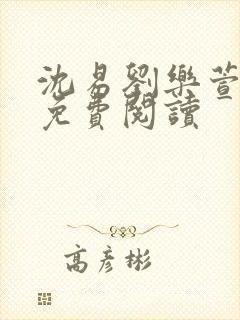 沈易劉樂萱
免費閱讀
高彥彬